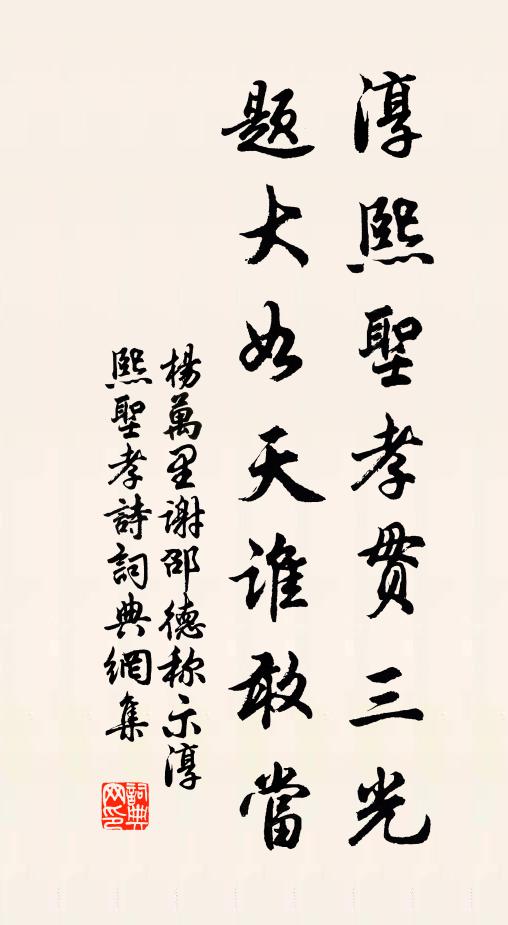 淳熙聖孝貫三光
題大如天誰敢當
楊萬里謝邵德称示淳
熙聖孝詩詞典網集
詞典网印